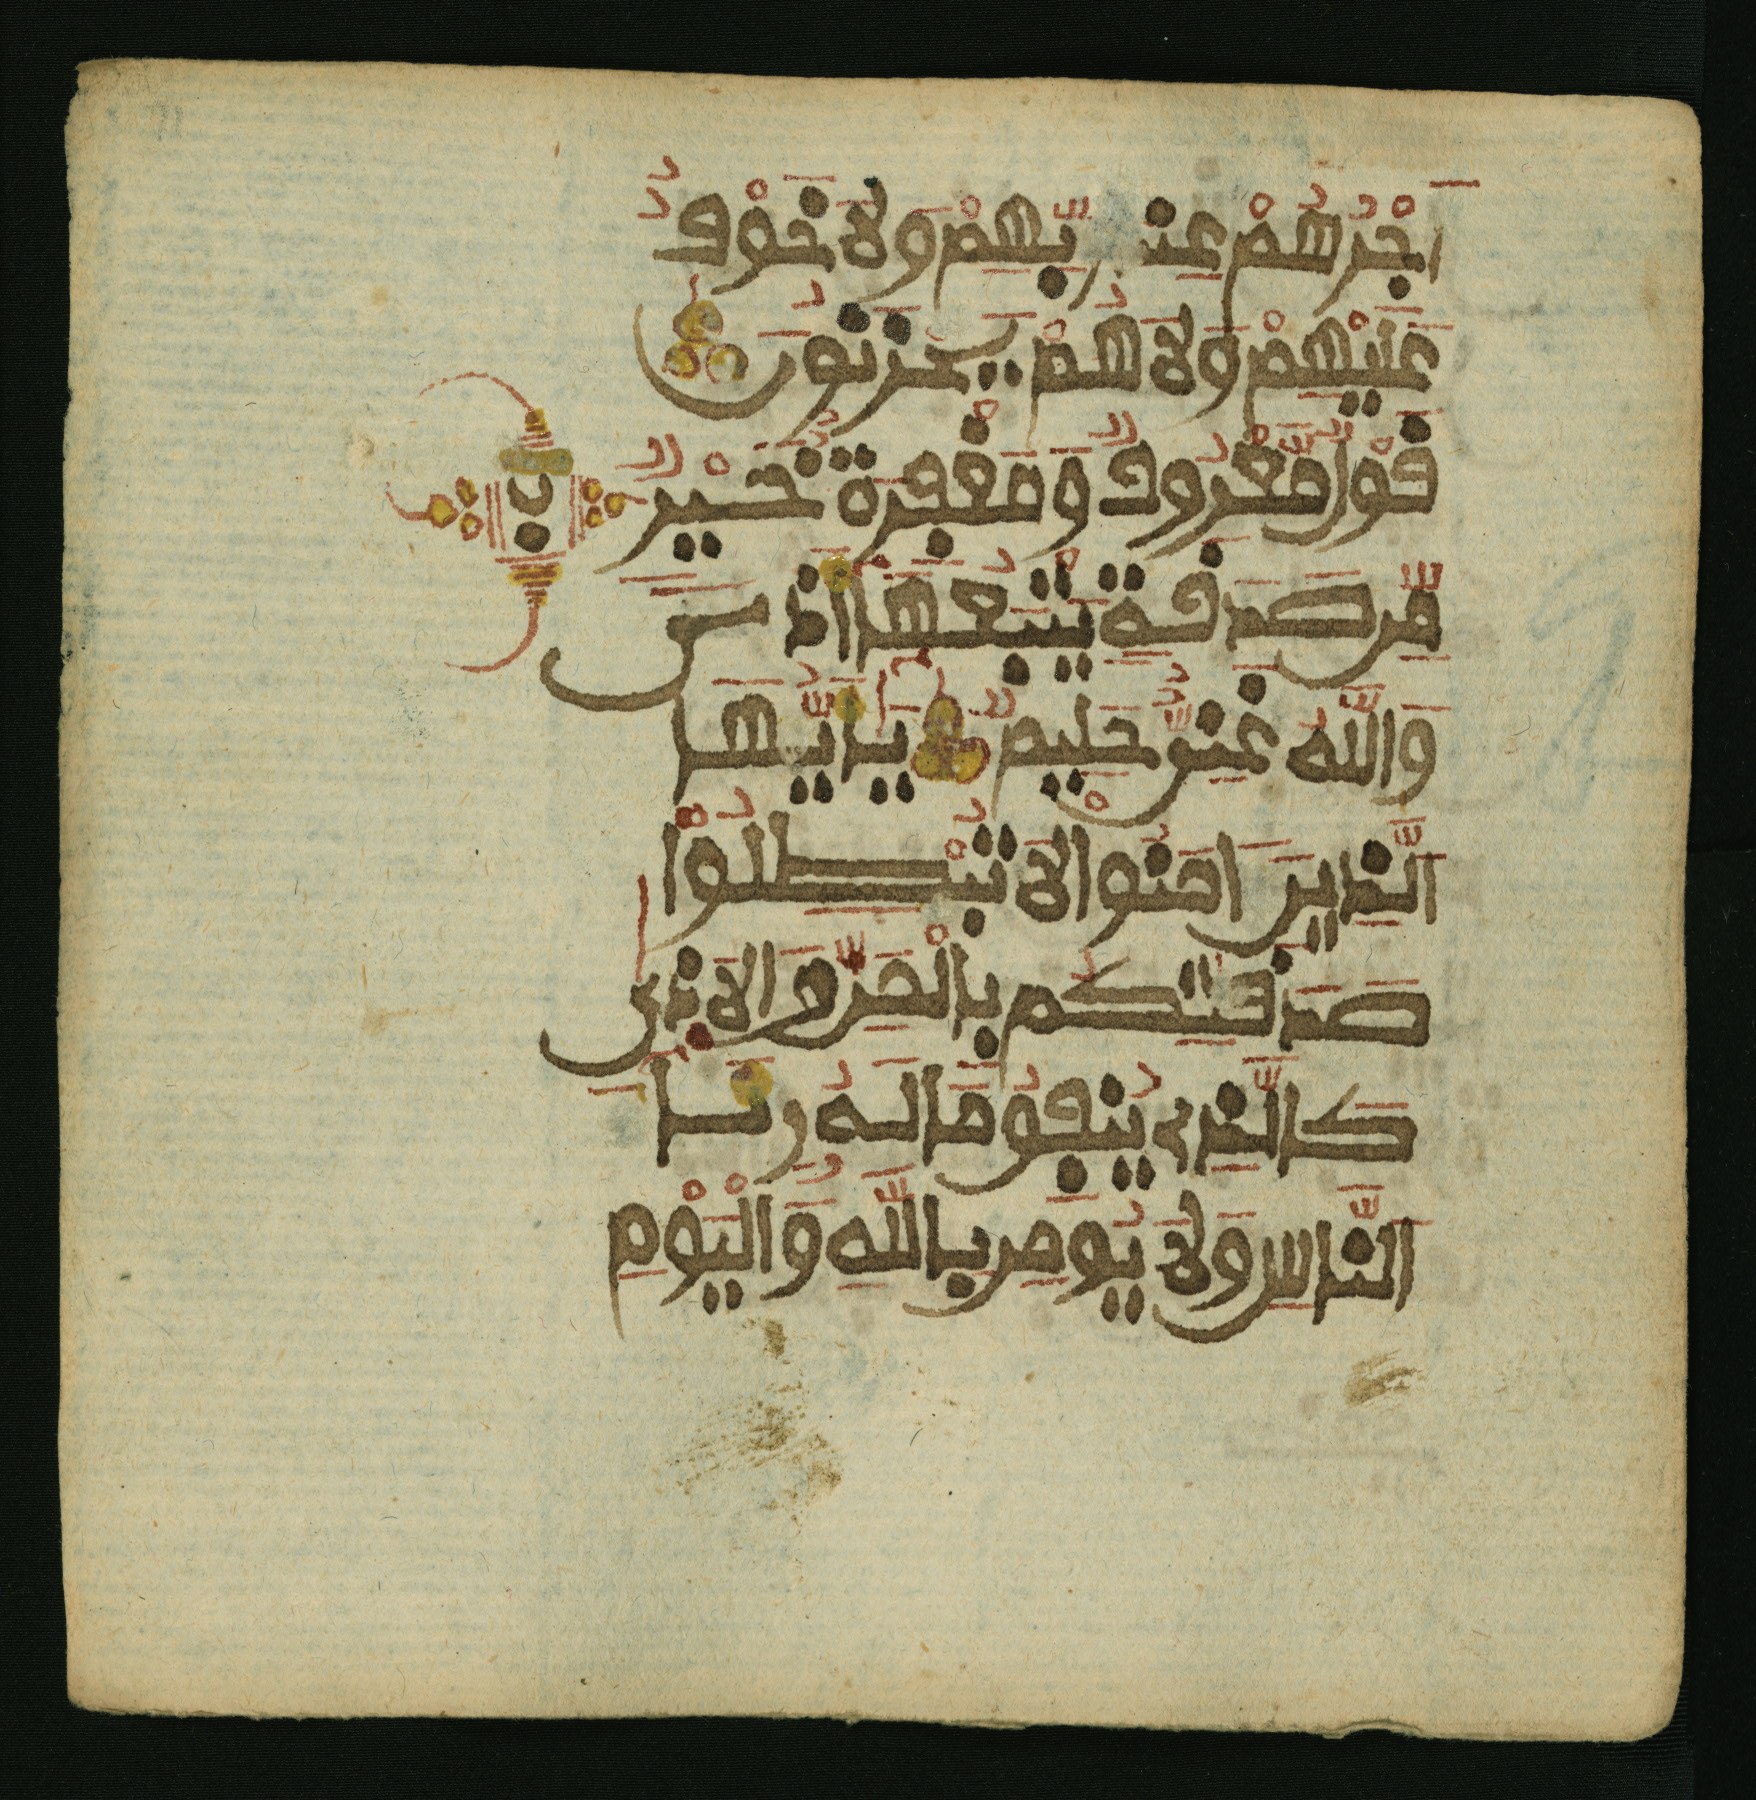 اَجْرُهُمْ عِندَ رَبِّهِمْ وَلَا خَوْفٌ
عَلَيْهِمْ وَلَا هُمْ يَحْزَنُونَ
قَوْلٌ مَّعْرُوفٌ وَمَغْفِرَةٌ خَيْرٌ
مِّن صَدَقَةٍ يَتْبَعُهَا أَذًى
وَاللَّهُ غَنِيٌّ حَلِيمٌ يَاأَيُّهَا
الَّذِينَ ءَامَنُوا لَا تُبْطِلُوْا
صَدَقَٰتِكُم بِالْمَنِّ وَالَاذَىٰ
كَالَّذِي يُنفِقُ مَالَهُ رِئَاءَ
النَّاسِ وَلَا يُومِنُ بِاللَّهِ وَالْيَوْمِ
ب